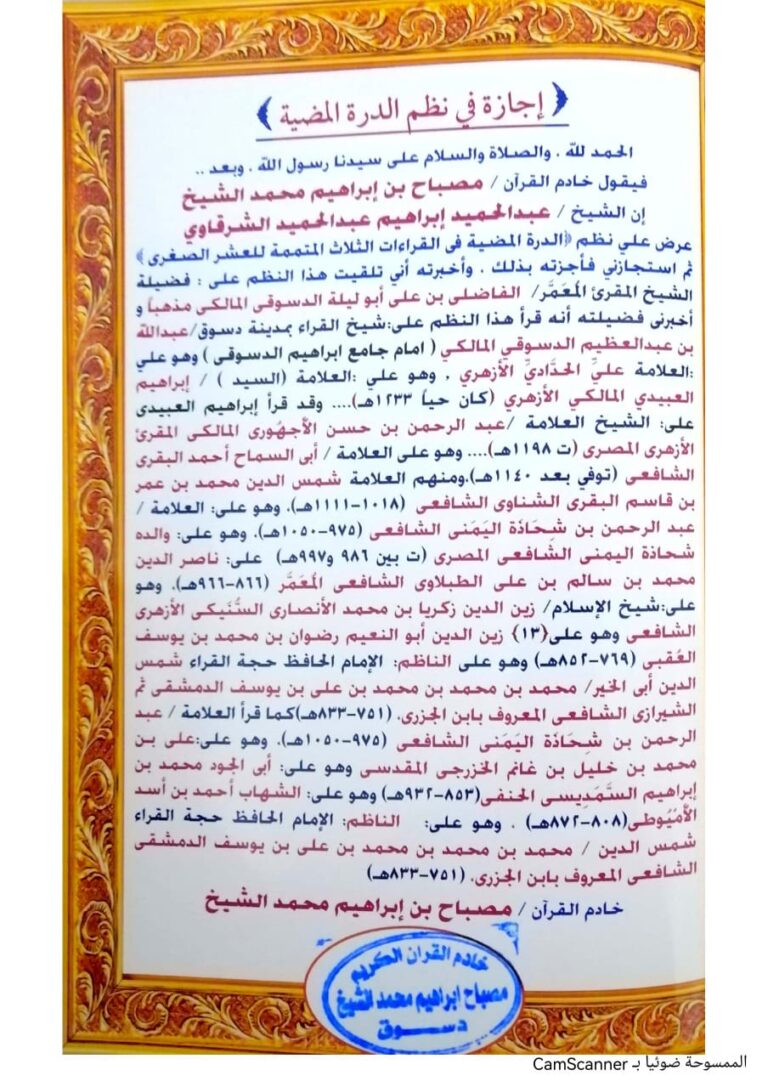 ﴿ إجازة في نظم الدرة المضية ﴾
الحمد لله . والصلاة والسلام على سيدنا رسول الله . وبعد ..
فيقول خادم القرآن / مصباح بن إبراهيم محمد الشيخ
إن الشيخ / عبدالحميد إبراهيم عبدالحميد الشرقاوي
عرض علي نظم ﴿الدرة المضية فى القراءات الثلاث المتممة للعشر الصغرى﴾
ثم استجازني فأجزته بذلك . وأخبرته أني تلقيت هذا النظم على : فضيلة
الشيخ المقرئ المُعَمَّر/ الفاضلى بن على أبو ليلة الدسوقى المالكى مذهباً و
أخبرنى فضيلته أنه قرأ هذا النظم على:شيخ القراء بمدينة دسوق/عبدالله
بن عبدالعظيم الدسوقي المالكي ( امام جامع ابراهيم الدسوقى ) وهو علي
:العلامة عليِّ الحدَّاديِّ الأزهري . وهو علي :العلامة (السيد ) / إبراهيم
العبيدي المالكي الأزهري (كان حياً ١٢٣٣هـ).... وقد قرأ إبراهيم العبيدى
على: الشيخ العلامة /عبد الرحمن بن حسن الأجهُورى المالكى المقرئ
الأزهرى المصرى (ت ١١٩٨هـ).... وهو على العلامة / أبى السماح أحمد البقرى
الشافعى (توفي بعد ١١٤٠هـ).ومنهم العلامة شمس الدين محمد بن عمر
بن قاسم البقرى الشناوى الشافعى (١٠١٨-١١١١هـ). وهو على: العلامة /
عبد الرحمن بن شِحَاذَة اليَمَنى الشافعى (٩٧٥-١٠٥٠هـ). وهو على: والده
شحاذة اليمنى الشافعى المصرى (ت بين ٩٨٦ و٩٩٧هـ) على: ناصر الدين
محمد بن سالم بن على الطبلاوى الشافعى المُعَمَّر (٨٦٦-٩٦٦هـ). وهو
على:شيخ الإسلام/ زين الدين زكريا بن محمد الأنصارى السُّنَيكى الأزهرى
الشافعى وهو على{١٣} زين الدين أبو النعيم رضوان بن محمد بن يوسف
العُقبى (٧٦٩-٨٥٢هـ) وهو على الناظم: الإمام الحافظ حجة القراء شمس
الدين أبى الخير/ محمد بن محمد بن محمد بن على بن يوسف الدمشقى ثم
الشيرازى الشافعى المعروف بابن الجزرى. (٧٥١-٨٣٣هـ)كما قرأ العلامة / عبد
الرحمن بن شِحَاذَة اليَمَنى الشافعى (٩٧٥-١٠٥٠هـ). وهو على:على بن
محمد بن خليل بن غانم الخزرجى المقدسى وهو على: أبى الجود محمد بن
إبراهيم السَّمَدِيسى الحنفى(٨٥٣-٩٣٢هـ) وهو على: الشهاب أحمد بن أسد
الأُمْيُوطى(٨٠٨-٨٧٢هـ) . وهو على: الناظم: الإمام الحافظ حجة القراء
شمس الدين / محمد بن محمد بن محمد بن على بن يوسف الدمشقى
الشافعى المعروف بابن الجزرى. (٧٥١-٨٣٣هـ)
خادم القرآن / مصباح بن إبراهيم محمد الشيخ
خادم القران الكريم
مصباح ابراهيم محمد الشيخ
دسوق
الممسوحة ضوئيا بـ CamScanner